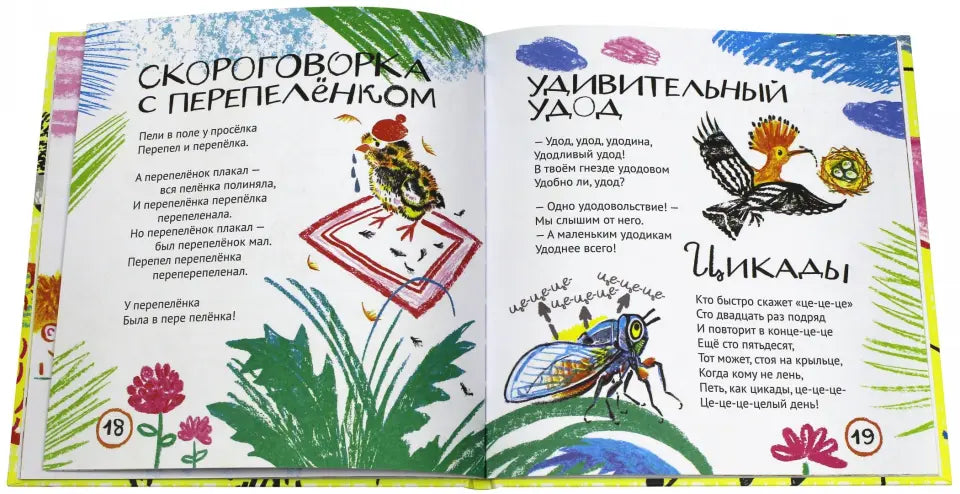 СКОРОГОВОРКА
С ПЕРЕПЕЛЁНКОМ
Пели в поле у просёлка
Перепел и перепёлка.
А перепелёнок плакал —
вся пелёнка полиняла,
И перепелёнка перепёлка
перепеленала.
Но перепелёнок плакал —
был перепелёнок мал.
Перепел перепелёнка
переперепеленал.
У перепелёнка
Была в пере пелёнка!
18
УДИВИТЕЛЬНЫЙ
УДОД
— Удод, удод, удодина,
Удодливый удод!
В твоём гнезде удодовом
Удобно ли, удод?
— Одно удодовольствие! —
Мы слышим от него.
— А маленьким удодикам
Удоднее всего!
це-це-це-
це-це-це-
це-це-це-
Цикады
Кто быстро скажет «це-це-це»
Сто двадцать раз подряд
И повторит в конце-це-це
Ещё сто пятьдесят,
Тот может, стоя на крыльце,
Когда кому не лень,
Петь, как цикады, це-це-це-
Це-це-це-целый день!
19